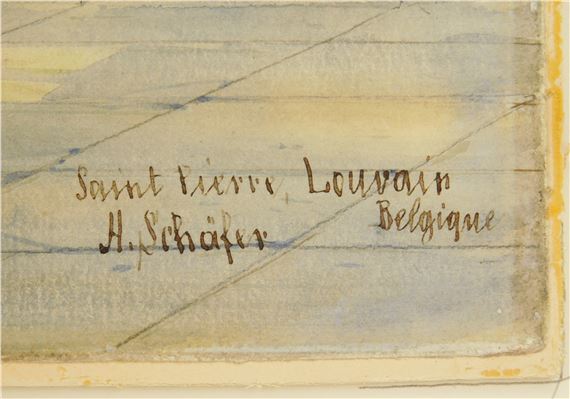 Saint Pierre, Louvain
Belgique
H. Schäfer